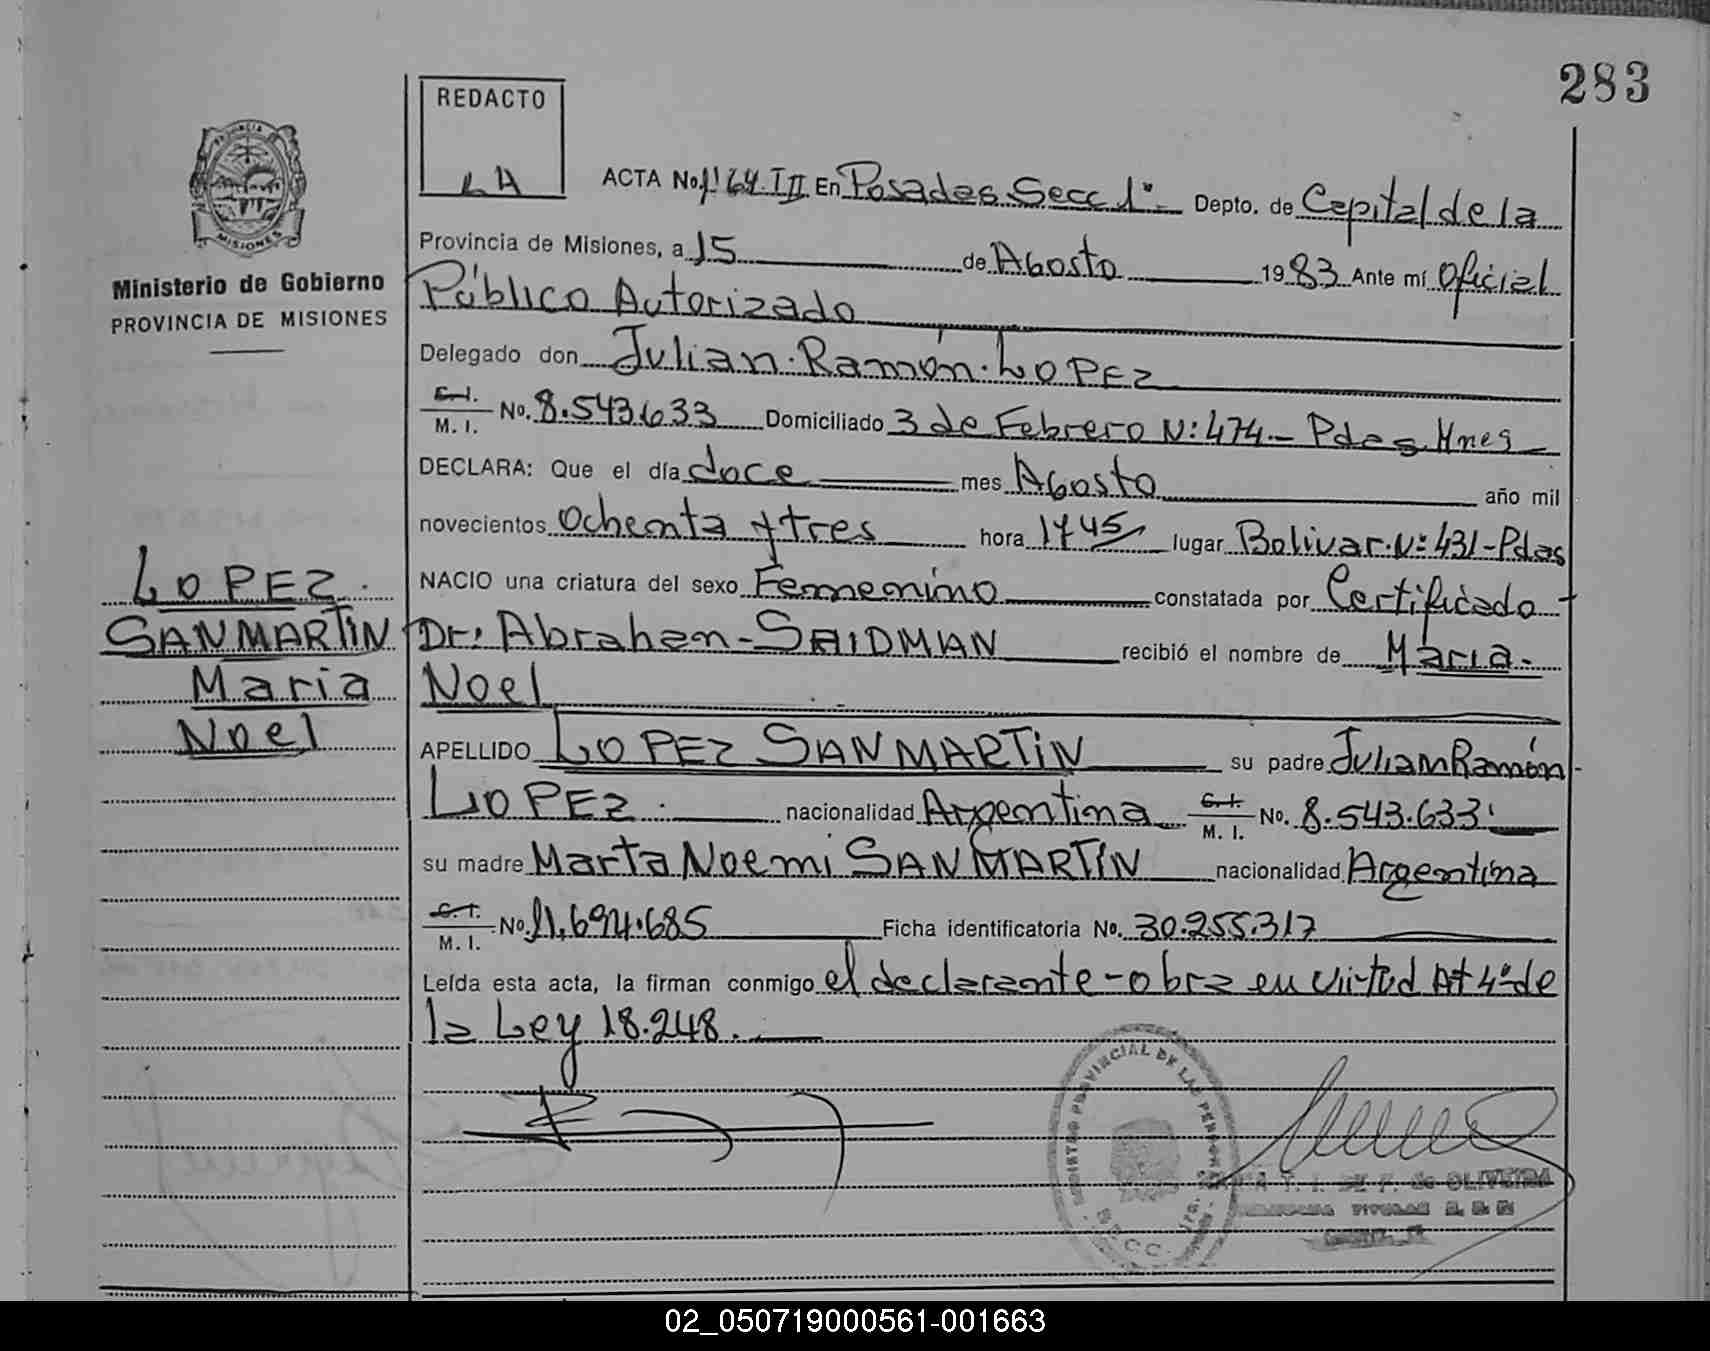 283
REDACTO
LA
PROVINCIA
MISIONES
Ministerio de Gobierno
PROVINCIA DE MISIONES
ACTA No. 1164. T II En Posadas Secc 1° Depto. de Capital de la
Provincia de Misiones, a 15 de Agosto 1983 Ante mí Oficial
Público Autorizado
Delegado don Julian Ramón LOPEZ
C. I.
M. I. No. 8.543.633 Domiciliado 3 de Febrero N: 474 - Pdas Mnes
DECLARA: Que el día doce mes Agosto año mil
novecientos Ochenta y tres hora 1745 lugar Bolivar N: 431 - Pdas
NACIO una criatura del sexo Femenino constatada por Certificado
Dr. Abrahan - SAIDMAN recibió el nombre de Maria
Noel
APELLIDO LOPEZ SAN MARTIN su padre Julian Ramón
LOPEZ. nacionalidad Argentina C. I.
M. I. No. 8.543.633
su madre Marta Noemi SAN MARTIN nacionalidad Argentina
C. I.
M. I. No. 11.694.685 Ficha identificatoria No. 30.255.317
Leída esta acta, la firman conmigo el declarante - obra en virtud At 4° de
la Ley 18.248.
LOPEZ
SAN MARTIN
Maria
Noel
REGISTRO PROVINCIAL DE LAS PERSONAS
SECC. 1ra.
T. I. DE F. de OLIVEIRA
TITULAR
02_050719000561-001663